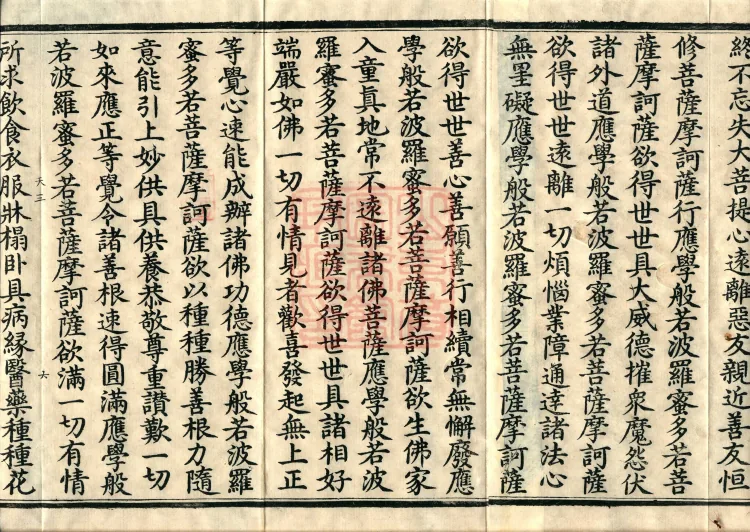 終不忘失大菩提心遠離惡友親近善友恒
修菩薩摩訶薩行應學般若波羅蜜多若菩
薩摩訶薩欲得世世具大威德摧衆魔怨伏
諸外道應學般若波羅蜜多若菩薩摩訶薩
欲得世世遠離一切煩惱業障通達諸法心
無罣礙應學般若波羅蜜多若菩薩摩訶薩
欲得世世善心善願善行相續常無懈廢應
學般若波羅蜜多若菩薩摩訶薩欲生佛家
入童真地常不遠離諸佛菩薩應學般若波
羅蜜多若菩薩摩訶薩欲得世世具諸相好
端嚴如佛一切有情見者歡喜發起無上正
等覺心速能成辦諸佛功德應學般若波羅
蜜多若菩薩摩訶薩欲以種種勝善根力隨
意能引上妙供具供養恭敬尊重讃歎一切
如來應正等覺令諸善根速得圓滿應學般
若波羅蜜多若菩薩摩訶薩欲滿一切有情
天三
六
所求飲食衣服牀榻臥具病緣醫藥種種花